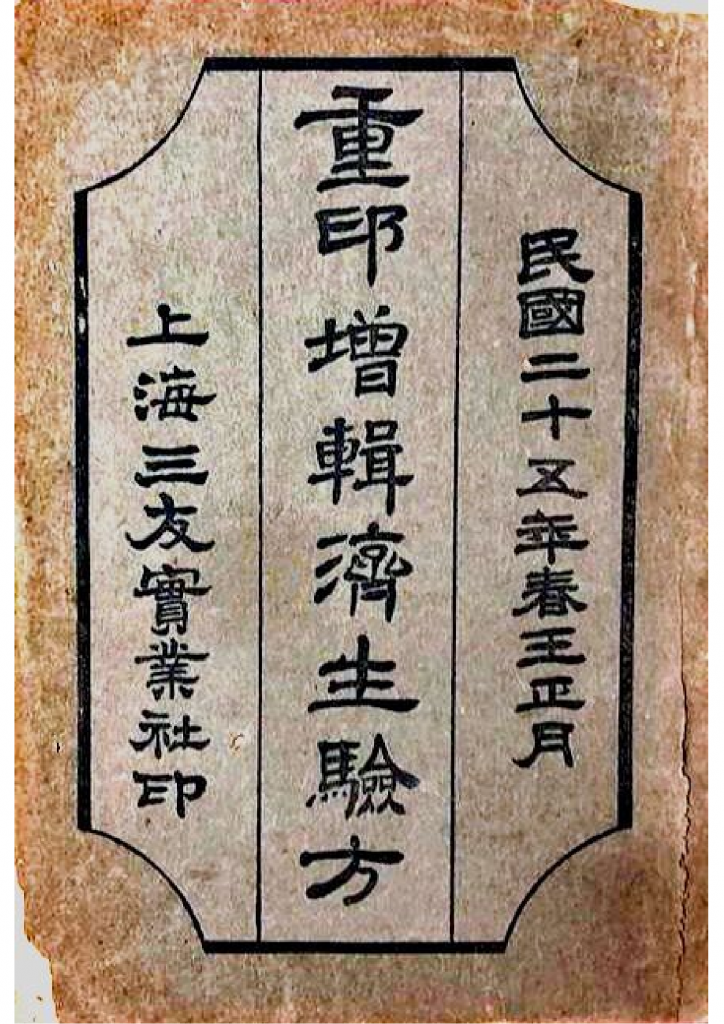 民國二十五年春王正月
重印增輯濟生驗方
上海三友實業社印